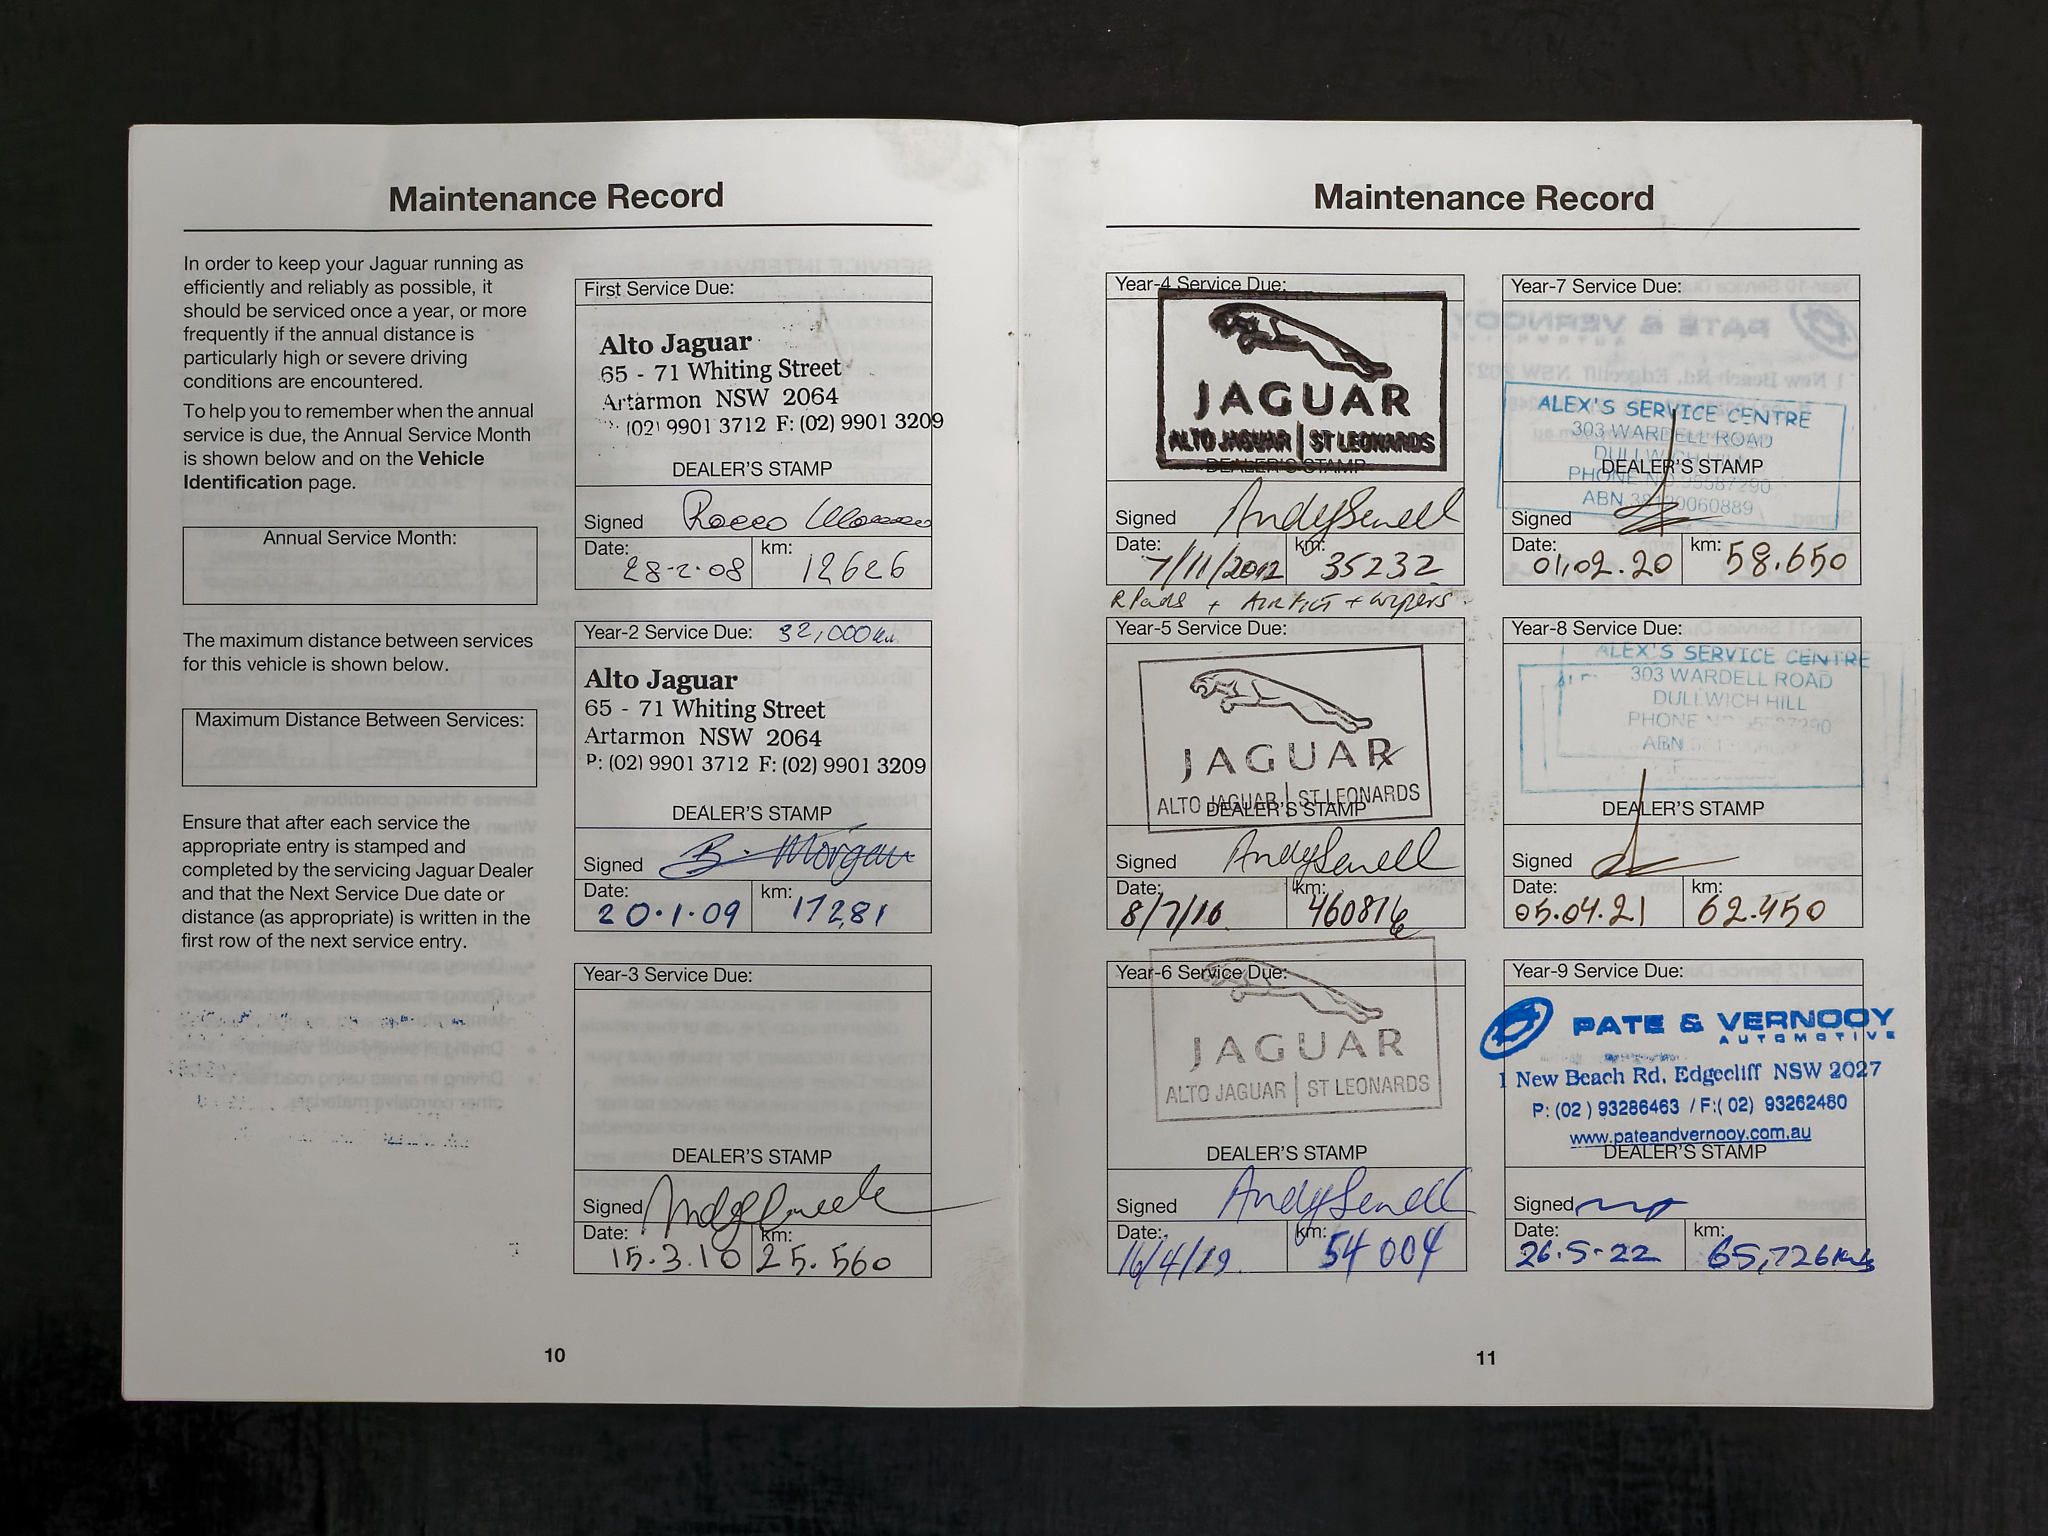 Maintenance Record
In order to keep your Jaguar running as
efficiently and reliably as possible, it
should be serviced once a year, or more
frequently if the annual distance is
particularly high or severe driving
conditions are encountered.
To help you to remember when the annual
service is due, the Annual Service Month
is shown below and on the Vehicle
Identification page.
Annual Service Month:
The maximum distance between services
for this vehicle is shown below.
Maximum Distance Between Services:
Ensure that after each service the
appropriate entry is stamped and
completed by the servicing Jaguar Dealer
and that the Next Service Due date or
distance (as appropriate) is written in the
first row of the next service entry.
First Service Due:
Alto Jaguar
65 - 71 Whiting Street
Artarmon NSW 2064
(02) 9901 3712 F: (02) 9901 3209
DEALER'S STAMP
Signed Rocco
Date: 28-2-08 km: 12626
Year-2 Service Due: 32,000km
Alto Jaguar
65 - 71 Whiting Street
Artarmon NSW 2064
P: (02) 9901 3712 F: (02) 9901 3209
DEALER'S STAMP
Signed B. Morgan
Date: 20.1.09 km: 17281
Year-3 Service Due:
DEALER'S STAMP
Signed
Date: 15.3.10 km: 25.560
10
Maintenance Record
Year-4 Service Due:
JAGUAR
ALTO JAGUAR | ST LEONARDS
DEALER'S STAMP
Signed Andy Sewell
Date: 7/11/2012 km: 35232
R Pads + AIR FILT + wipers.
Year-5 Service Due:
JAGUAR
ALTO JAGUAR | ST LEONARDS
DEALER'S STAMP
Signed Andy Sewell
Date: 8/7/16 km:
Year-6 Service Due:
JAGUAR
ALTO JAGUAR | ST LEONARDS
DEALER'S STAMP
Signed Andy Sewell
Date: 16/4/19 km: 54004
Year-7 Service Due:
ALEX'S SERVICE CENTRE
303 WARDELL ROAD
DULLWICH HILL
DEALER'S STAMP
PHONE NO.95587290
ABN 38120060889
Signed
Date: 01.02.20 km: 58.650
Year-8 Service Due:
ALEX'S SERVICE CENTRE
303 WARDELL ROAD
DULLWICH HILL
PHONE
ABN
DEALER'S STAMP
Signed
Date: 05.04.21 km: 62.450
Year-9 Service Due:
PATE & VERNOOY
AUTOMOTIVE
1 New Beach Rd, Edgecliff NSW 2027
P: (02) 93286463 / F:(02) 93262480
www.pateandvernooy.com.au
DEALER'S STAMP
Signed
Date: 26.5-22 km: 65,726kms
11